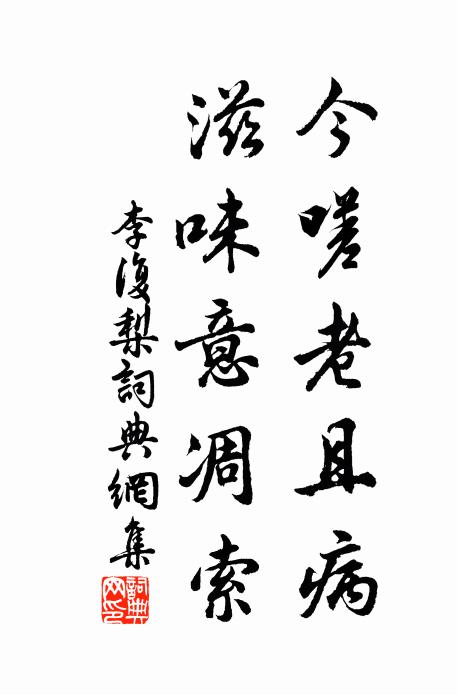 今嗟老且病
滋味意凋索
李復梨詞典網集
詞典网印